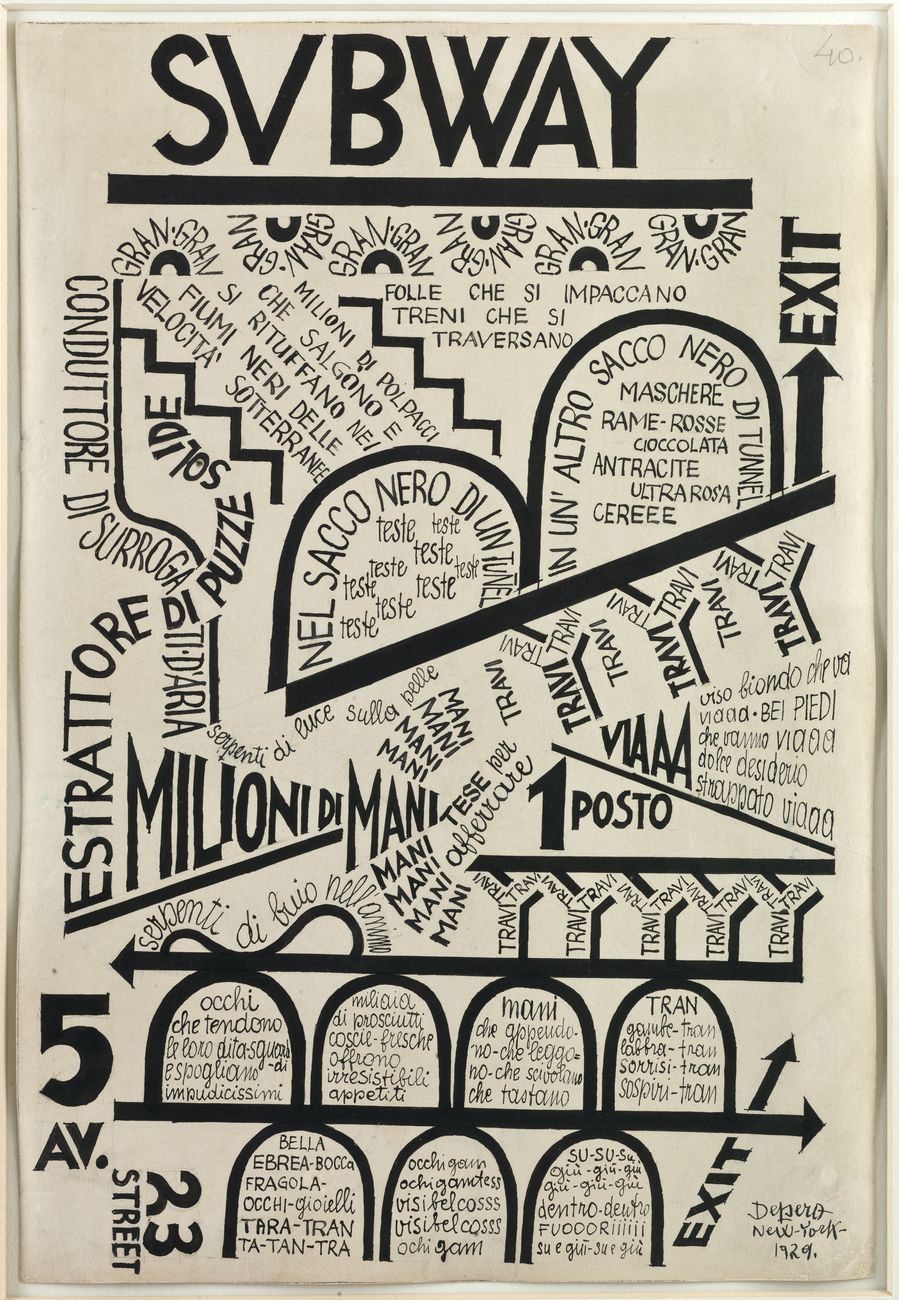 40.
SVBWAY
GRAN·GRAN
GRAN·GRAN
GRAN·GRAN
GRAN·GRAN
GRAN·GRAN
GRAN·GRAN
EXIT
FOLLE CHE SI IMPACCANO
TRENI CHE SI
TRAVERSANO
MILIONI DI POLPACCI
CHE SALGONO E
SI RITUFFANO NEI
FIUMI NERI DELLE
VELOCITA' SOTTERRANEE
CONDUTTORE DI SURROGATI·D'ARIA
ESTRATTORE DI PUZZE SOLIDE
NEL SACCO NERO DI UN TUNEL
teste teste
teste
teste teste
teste teste
teste
teste
IN UN' ALTRO SACCO NERO DI TUNNEL
MASCHERE
RAME-ROSSE
CIOCCOLATA
ANTRACITE
ULTRAROSA
CEREEE
TRAVI TRAVI TRAVI
TRAVI TRAVI TRAVI
TRAVI TRAVI TRAVI
TRAVI TRAVI TRAVI
serpenti di luce sulla pelle
MILIONI DI MANI
MANI
MANI
MANI
MANI
TESE per
afferrare
MANI
MANI
MANI
MANI
1 POSTO
VIAAA
viso biondo che va
viaaa·BEI PIEDI
che vanno viaaa
dolce desiderio
strappato viaaa
serpenti di buio nell'animo
TRAVI TRAVI TRAVI
TRAVI TRAVI TRAVI
TRAVI TRAVI TRAVI
TRAVI TRAVI TRAVI
TRAVI TRAVI TRAVI
5
AV.
23
STREET
occhi
che tendono
le loro dita-sguardi
e spogliano-di
impudicissimi
miliaia
di prosciutti
coscie-fresche
offrono
irresistibili
appetiti
mani
che appendo-
no-che leggo=
no-che scivolano
che tastano
TRAN
gambe-tran
labbra-tran
sorrisi-tran
sospiri-tran
BELLA
EBREA-BOCCA
FRAGOLA-
OCCHI-gioielli
TARA-TRAN
TA-TAN-TRA
occhi gam
ochigamtess
visibelcosss
visibelcosss
ochi gam
SU-SU-Su,
giù-giù-giù
giù-giù-giù
dentro-dentro
FUOOORiiiiii
su e giù-su e giù
EXIT
Depero
New-York-
1929.